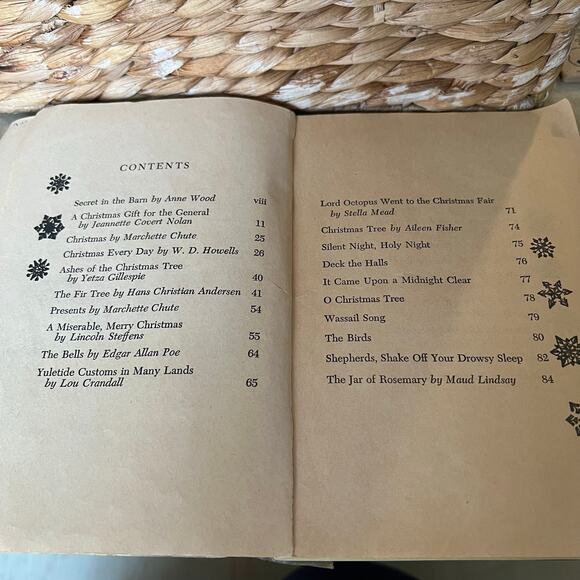 CONTENTS
Secret in the Barn by Anne Wood viii
A Christmas Gift for the General
by Jeannette Covert Nolan 11
Christmas by Marchette Chute 25
Christmas Every Day by W. D. Howells 26
Ashes of the Christmas Tree
by Yetza Gillespie 40
The Fir Tree by Hans Christian Andersen 41
Presents by Marchette Chute 54
A Miserable, Merry Christmas
by Lincoln Steffens 55
The Bells by Edgar Allan Poe 64
Yuletide Customs in Many Lands
by Lou Crandall 65
Lord Octopus Went to the Christmas Fair
by Stella Mead 71
Christmas Tree by Aileen Fisher 74
Silent Night, Holy Night 75
Deck the Halls 76
It Came Upon a Midnight Clear 77
O Christmas Tree 78
Wassail Song 79
The Birds 80
Shepherds, Shake Off Your Drowsy Sleep 82
The Jar of Rosemary by Maud Lindsay 84